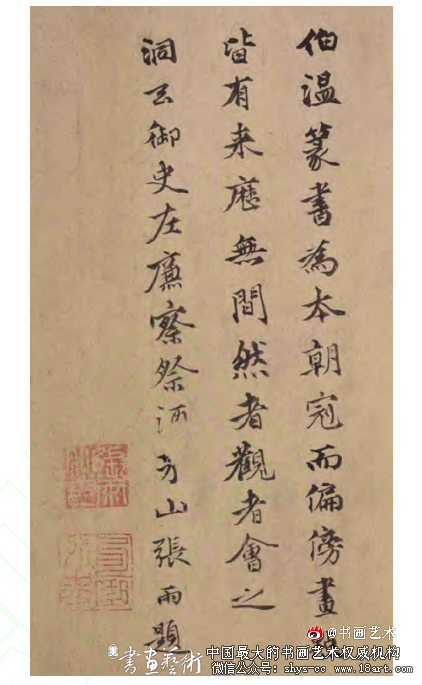 伯溫篆書為本朝冠而偏傍畫
皆有来歷無間然者觀者會之
洞御史左廉察祭山張雨題
@书画艺术
書畫藝術
中国最大的书画艺术权威机构
微信公众号: shys-cc www.18art.com